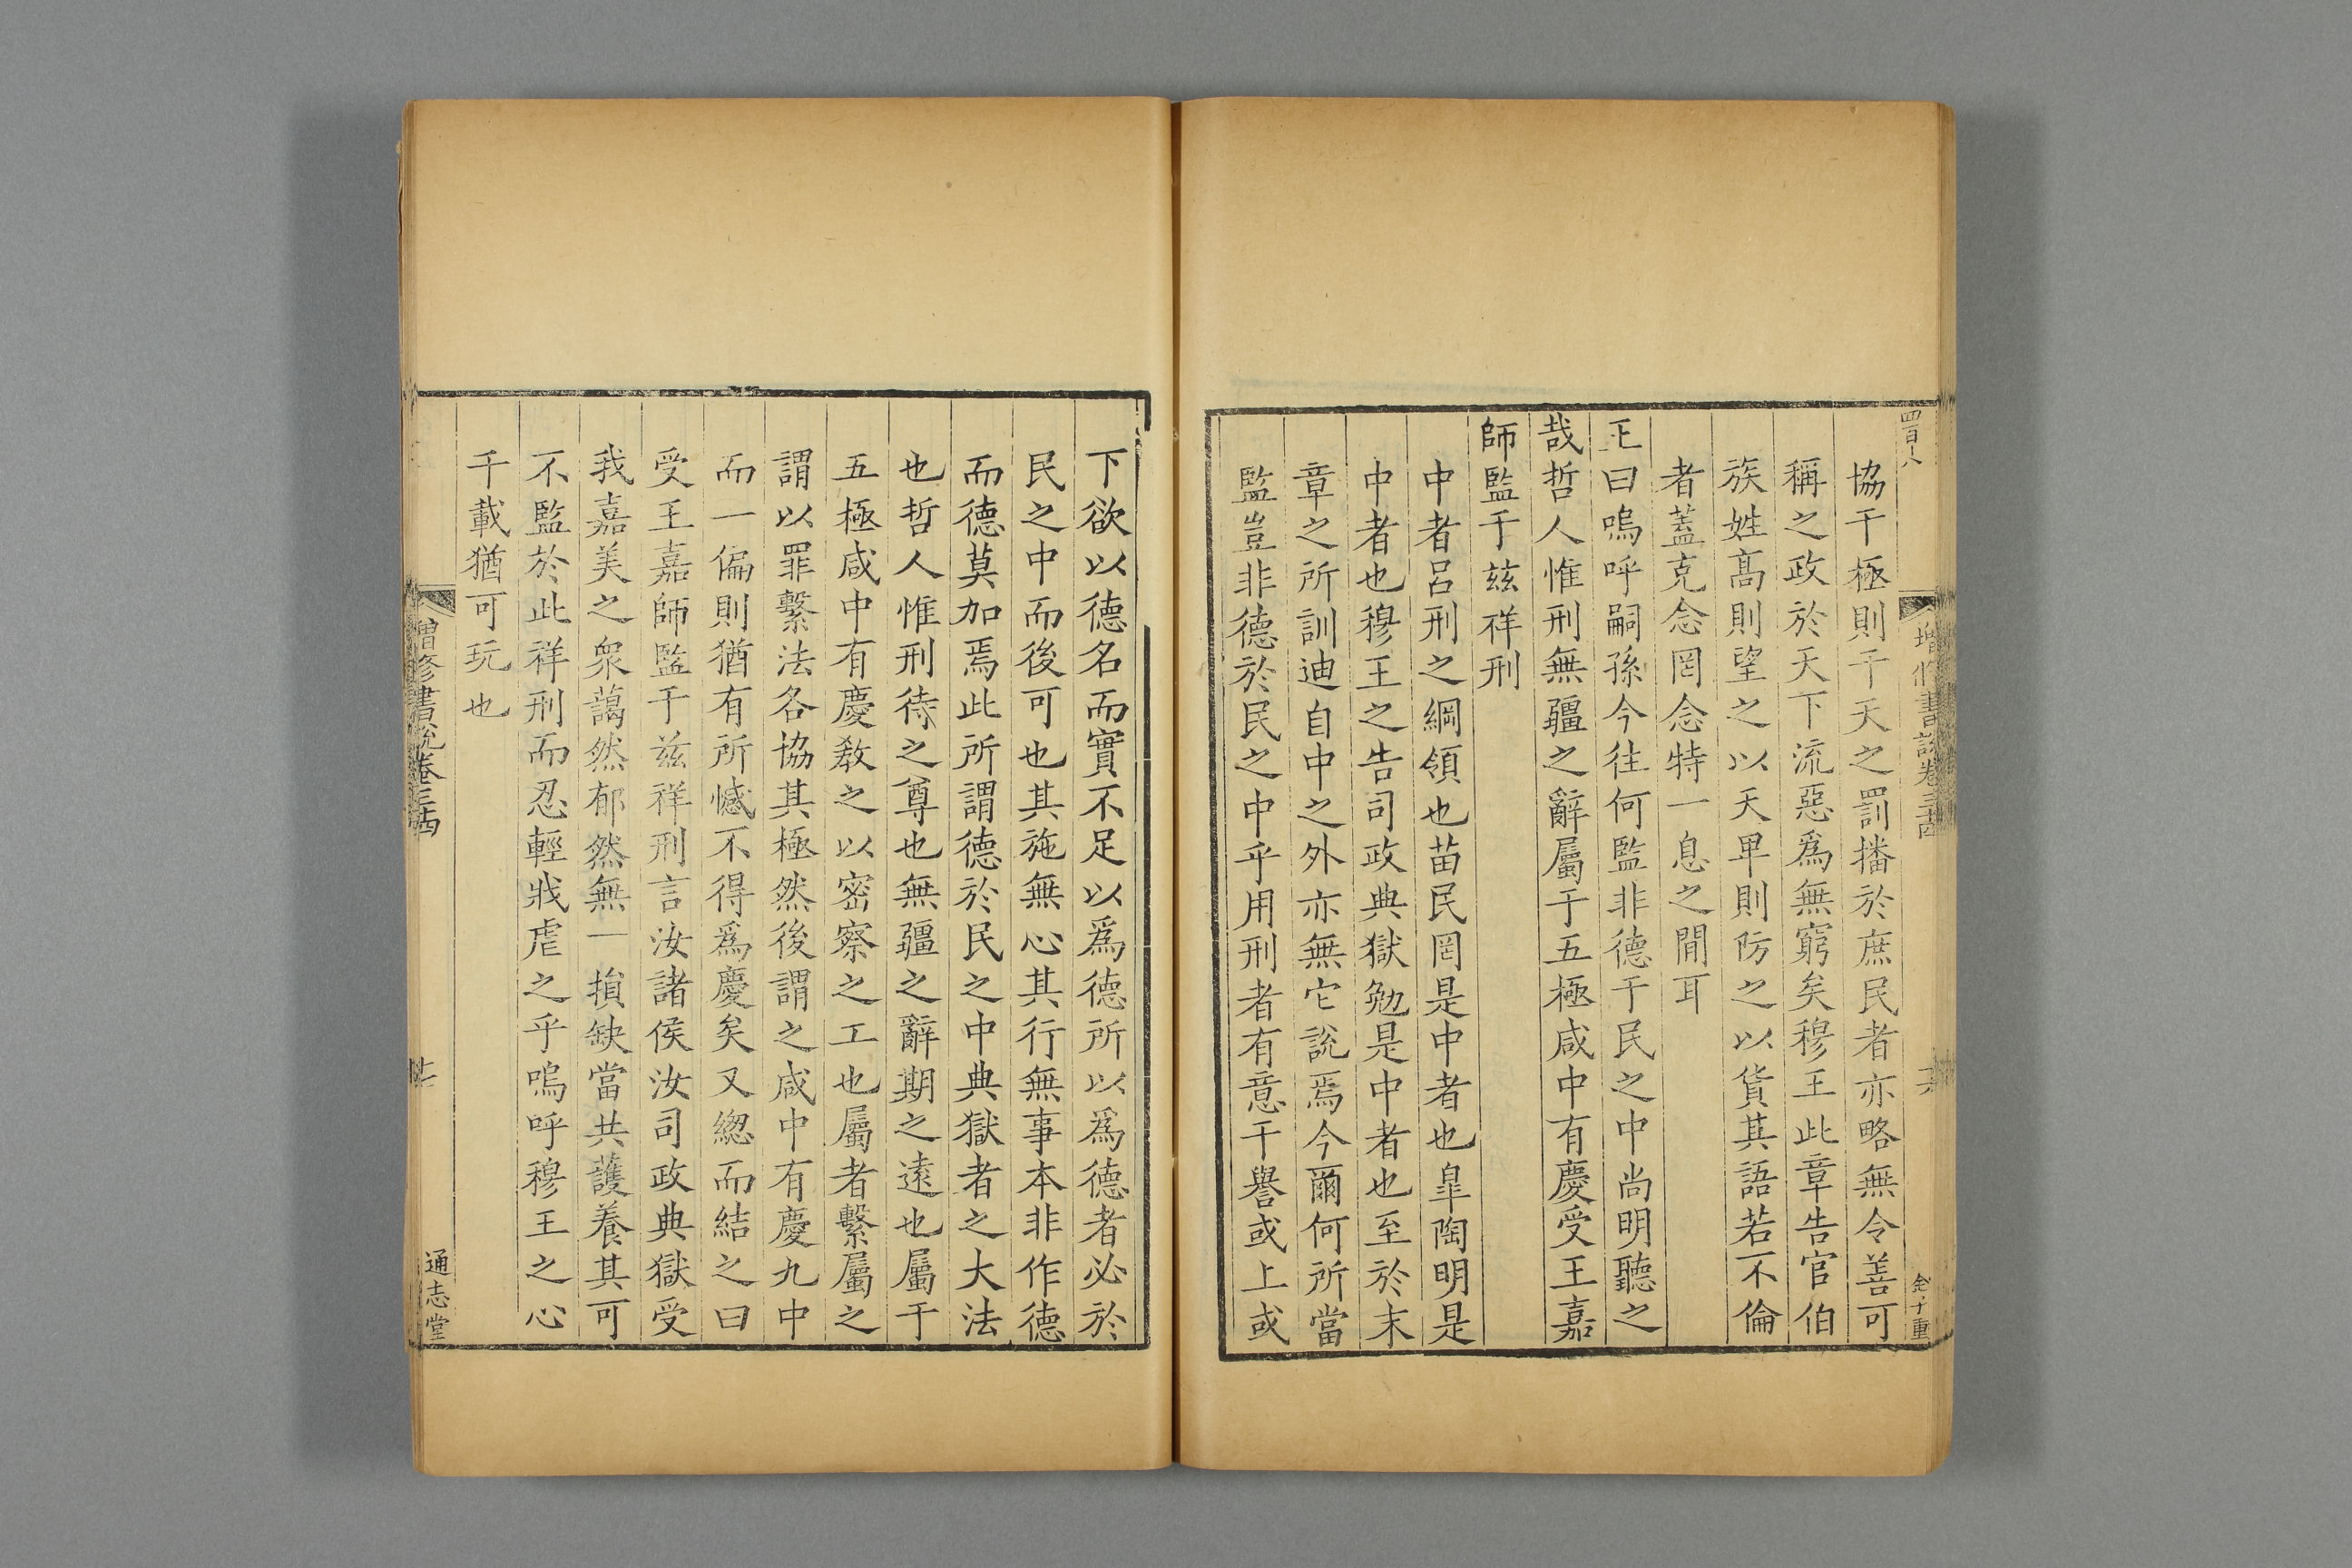 四百八
增修書說卷三十四
十六
協于極則干天之罰播於庶民者亦略無令善可
稱之政於天下流惡爲無窮矣穆王此章告官伯
族姓髙則望之以天卑則防之以貨其語若不倫
者蓋克念罔念特一息之間耳
王曰嗚呼嗣孫今往何監非德于民之中尚明聽之
哉哲人惟刑無疆之辭屬于五極咸中有慶受王嘉
師監于兹祥刑
中者吕刑之綱領也苗民罔是中者也皐陶明是
中者也穆王之告司政典獄勉是中者也至於末
章之所訓迪自中之外亦無它說焉今爾何所當
監豈非德於民之中乎用刑者有意干譽或上或
下欲以德名而實不足以爲德所以爲德者必於
民之中而後可也其施無心其行無事本非作德
而德莫加焉此所謂德於民之中典獄者之大法
也哲人惟刑待之尊也無疆之辭期之遠也屬于
五極咸中有慶敎之以密察之工也屬者繫屬之
謂以罪繫法各協其極然後謂之咸中有慶九中
而一偏則猶有所憾不得爲慶矣又緫而結之曰
受王嘉師監于兹祥刑言汝諸侯汝司政典獄受
我嘉美之衆藹然郁然無一損缺當共護養其可
不監於此祥刑而忍輕戕虐之乎嗚呼穆王之心
千載猶可玩也
增修書說卷三十四
十七
通志堂